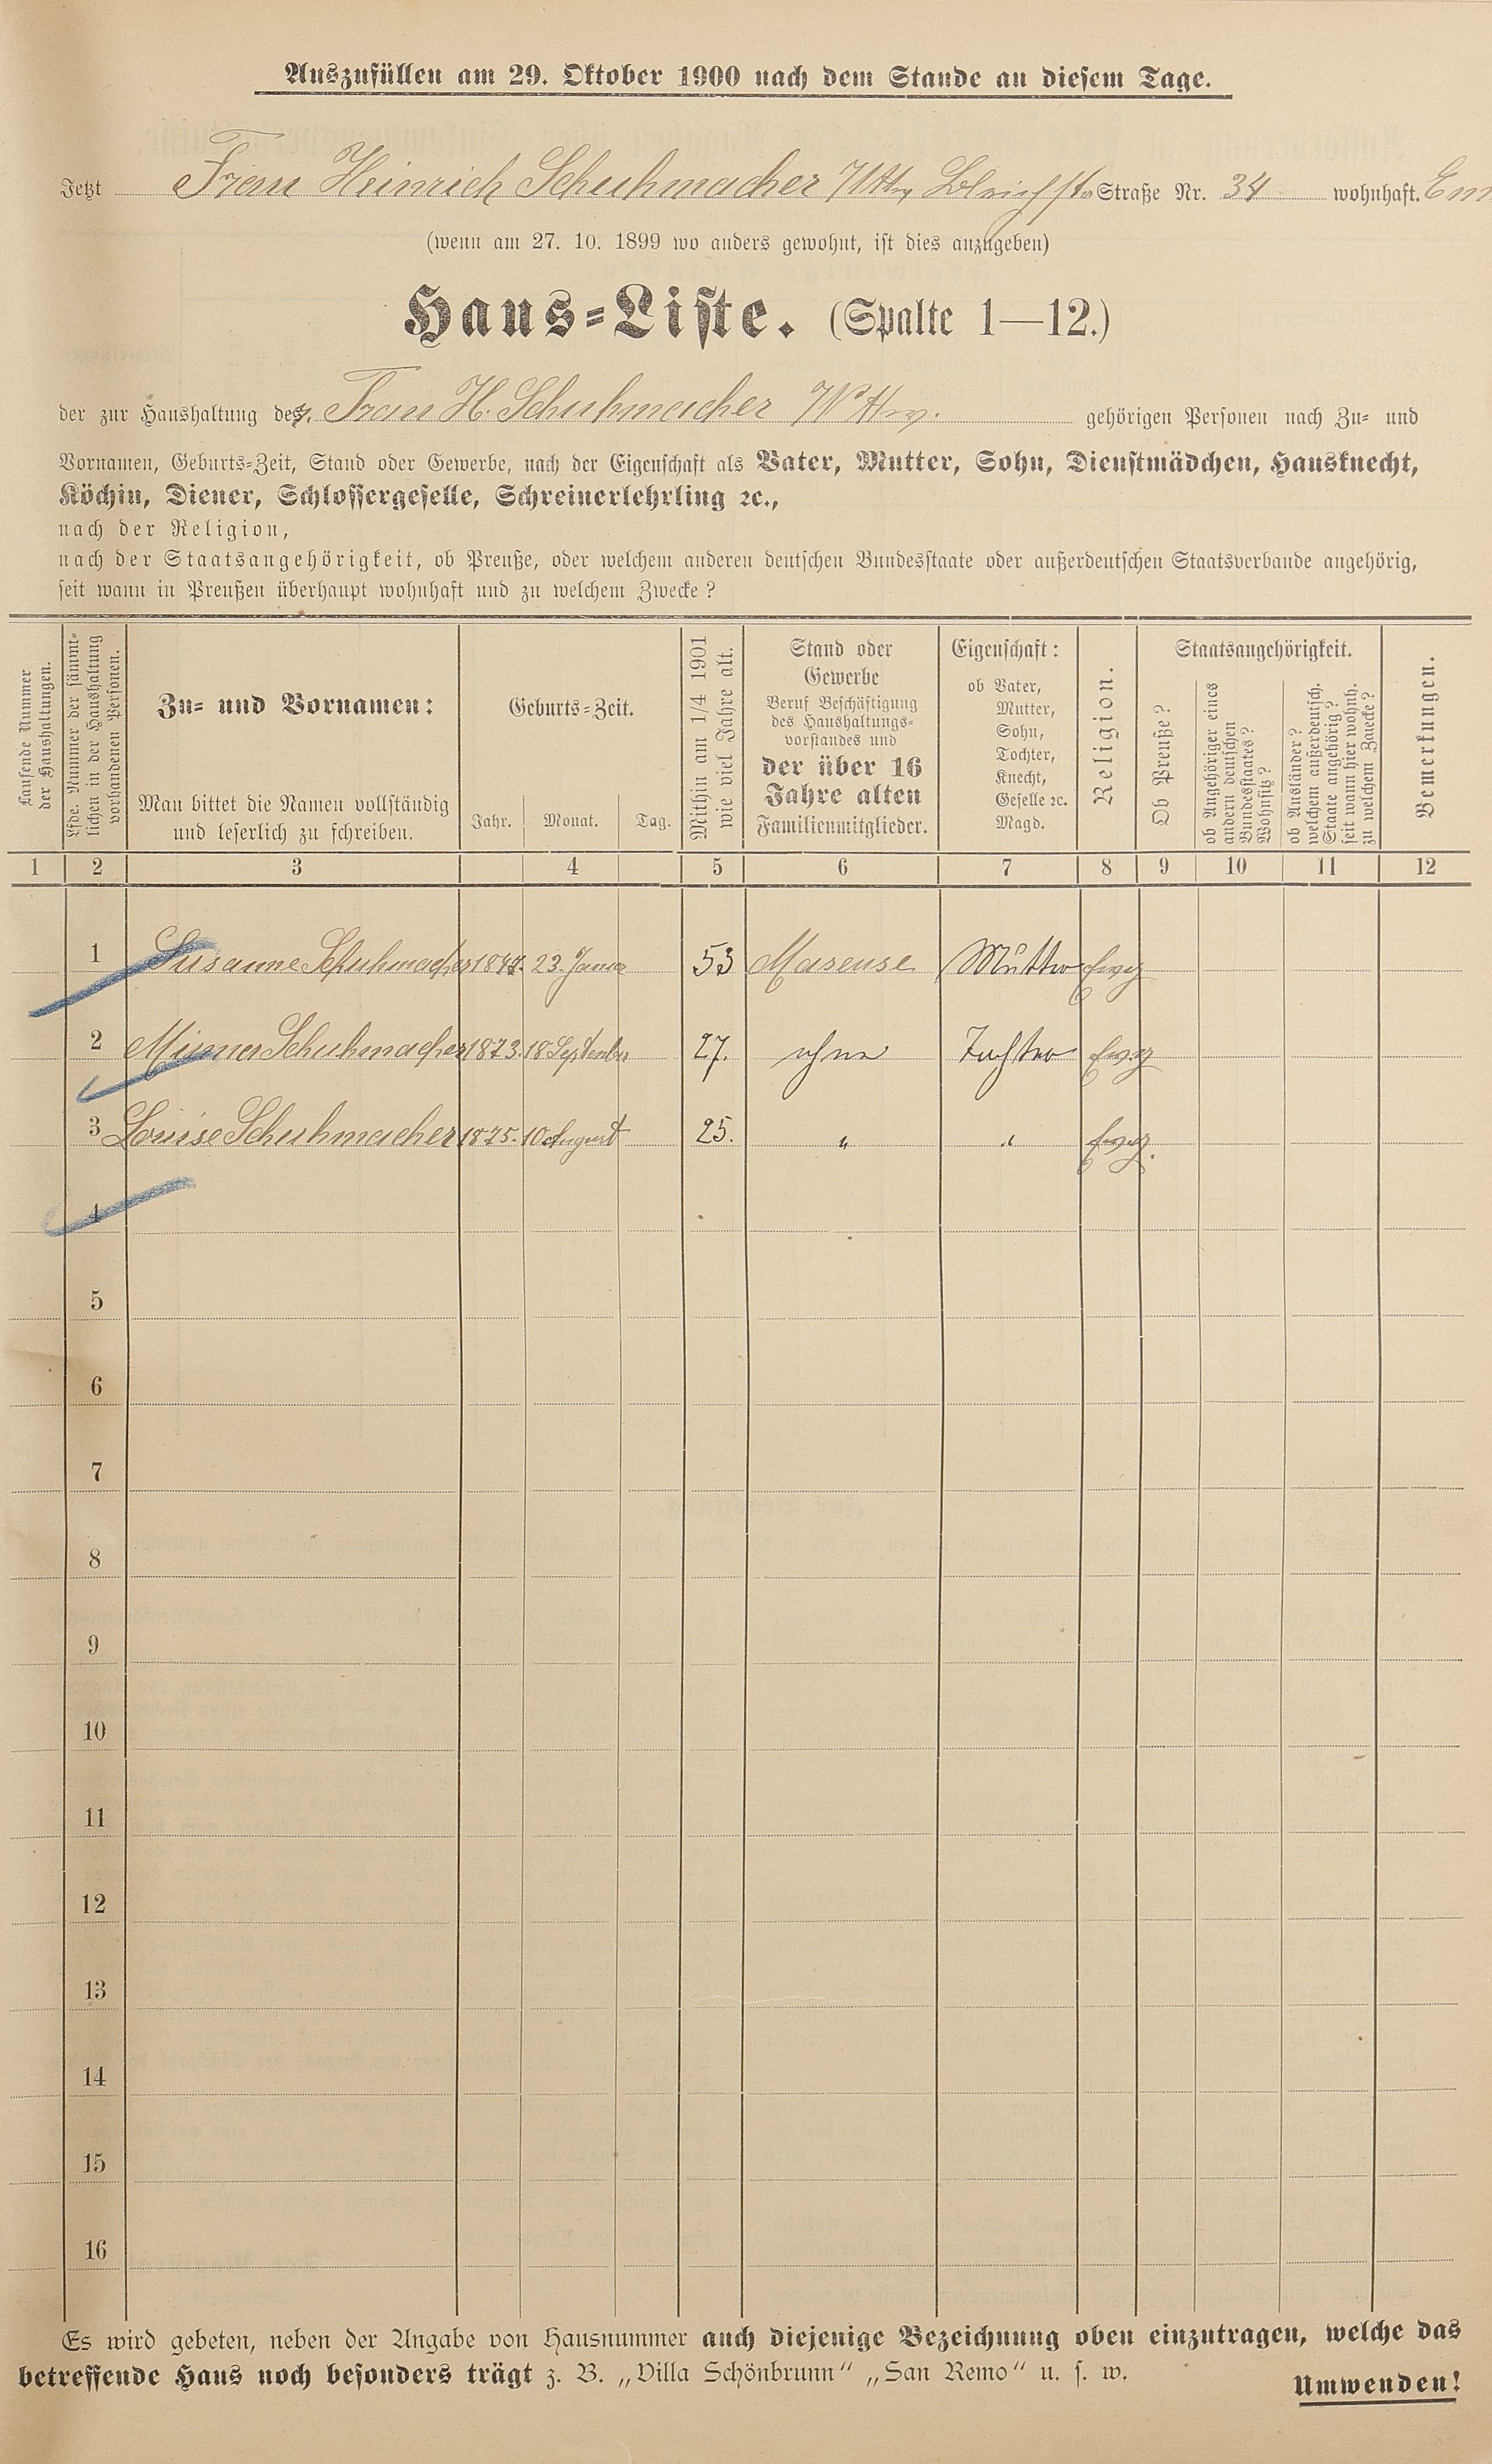 Auszufüllen am 29. Oktober 1900 nach dem Stande an diesem Tage.
Jetzt Frau Heinrich Schuhmacher Wttw. Straße Nr. 34 wohnhaft. Em
(wenn am 27. 10. 1899 wo anders gewohnt, ist dies anzugeben)
Haus-Liste. (Spalte 1—12.)
der zur Haushaltung der Frau H. Schuhmacher Wttw. gehörigen Personen nach Zu- und
Vornamen, Geburts-Zeit, Stand oder Gewerbe, nach der Eigenschaft als Vater, Mutter, Sohn, Dienstmädchen, Hausknecht,
Köchin, Diener, Schlossergeselle, Schreinerlehrling ꝛc.,
nach der Religion,
nach der Staatsangehörigkeit, ob Preuße, oder welchem anderen deutschen Bundesstaate oder außerdeutschen Staatsverbande angehörig,
seit wann in Preußen überhaupt wohnhaft und zu welchem Zwecke?
Laufende Nummer
der Haushaltungen.
Lfde. Nummer der sämmt-
lichen in der Haushaltung
vorhandenen Personen.
Zu- und Vornamen:
Man bittet die Namen vollständig
und leserlich zu schreiben.
Geburts-Zeit.
Jahr. Monat. Tag.
Mithin am 1/4 1901
wie viel Jahre alt.
Stand oder
Gewerbe
Beruf Beschäftigung
des Haushaltungs-
vorstandes und
der über 16
Jahre alten
Familienmitglieder.
Eigenschaft:
ob Vater,
Mutter,
Sohn,
Tochter,
Knecht,
Geselle ꝛc.
Magd.
Religion.
Staatsangehörigkeit.
Ob Preuße?
ob Angehöriger eines
andern deutschen
Bundesstaates?
Wohnsitz?
ob Ausländer?
welchem außerdeutsch.
Staate angehörig?
seit wann hier wohnh.
zu welchem Zwecke?
Bemerkungen.
1 2 3 4 5 6 7 8 9 10 11 12
1 Susanne Schuhmacher 1847. 23. Januar 53 Mutter Evg
2 Minna Schuhmacher 1873. 18 September 27. ohne Tochter Evg
3 Louise Schuhmacher 1875. 10 August 25. " " Evg.
4
5
6
7
8
9
10
11
12
13
14
15
16
Es wird gebeten, neben der Angabe von Hausnummer auch diejenige Bezeichnung oben einzutragen, welche das
betreffende Haus noch besonders trägt z. B. „Villa Schönbrunn“ „San Remo“ u. s. w.
Umwenden!